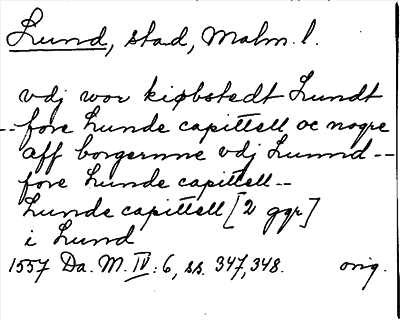 Lund, stad, Malm. l.
vdj wor kiøbstedt Lundt
-- fore Lunde capittell oc nogre
aff borgernne vdj Lunnd --
fore Lunde capittell --
Lunde capittell [2 ggr]
i Lund
1557 Da. M. IV: 6, ss. 347, 348. orig.